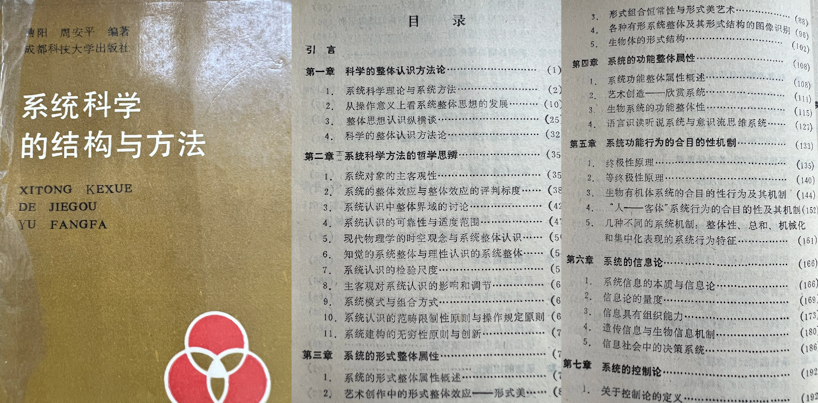 唐阳 周安平 编著
成都科技大学出版社
系统科学
的结构与方法
XITONG KEXUE
DE JIEGOU
YU FANGFA
目 录
引 言
第一章 科学的整体认识方法论……(1)
1. 系统科学理论与系统方法……(2)
2. 从操作意义上看系统整体思想的发展……(10)
3. 整体思想认识纵横谈……(25)
4. 科学的整体认识方法论……(32)
第二章 系统科学方法的哲学思辨……(35
1. 系统对象的主客观性……(35
2. 系统的整体效应与整体效应的评判标度……(38
3. 系统认识中整体界域的讨论……(42
4. 系统认识的可靠性与适度范围……(47
5. 现代物理学的时空观念与系统整体认识……(50
6. 知觉的系统整体与理性认识的系统整体……(5
7. 系统认识的检验尺度……(5
8. 主客观对系统认识的影响和调节……(6
9. 系统模式与组合方式……(6
10. 系统认识的范畴限制性原则与操作规定原则(6
11. 系统建构的无穷性原则与创新……(7
第三章 系统的形式整体属性……(7
1. 系统的形式整体属性概述……(7
2. 艺术创作中的形式整体效应——形式美……(8
3. 形式组合恒常性与形式美艺术……(88)
4. 各种有形系统整体及其形式结构的图像识别(96)
5. 生物体的形式结构……(102)
第四章 系统的功能整体属性……(108)
1. 系统功能整体属性概述……(108)
2. 艺术创造——欣赏系统……(111)
3. 生物系统的功能整体性……(115)
4. 语言识读听说系统与意识流思维系统……(122)
第五章 系统功能行为的合目的性机制……(133)
1. 终极性原理……(135)
2. 等终极性原理……(140)
3. 生物有机体系统的合目的性行为及其机制(144)
4. “人——客体”系统行为的合目的性及其机制(152)
5. 几种不同的系统机制：整体性、总和、机械化
和集中化表现的系统行为特征……(161)
第六章 系统的信息论……(166)
1. 系统信息的本质与信息论……(166)
2. 信息论的量度……(169)
3. 信息具有组织能力……(173)
4. 遗传信息与生物信息机制……(180)
5. 信息社会中的决策系统……(186)
第七章 系统的控制论……(192)
1. 关于控制论的定义……(192